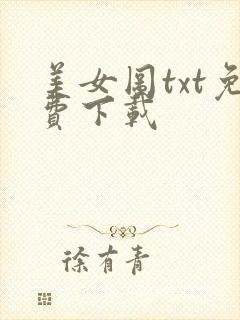 美女图txt免
费下载
徐有青